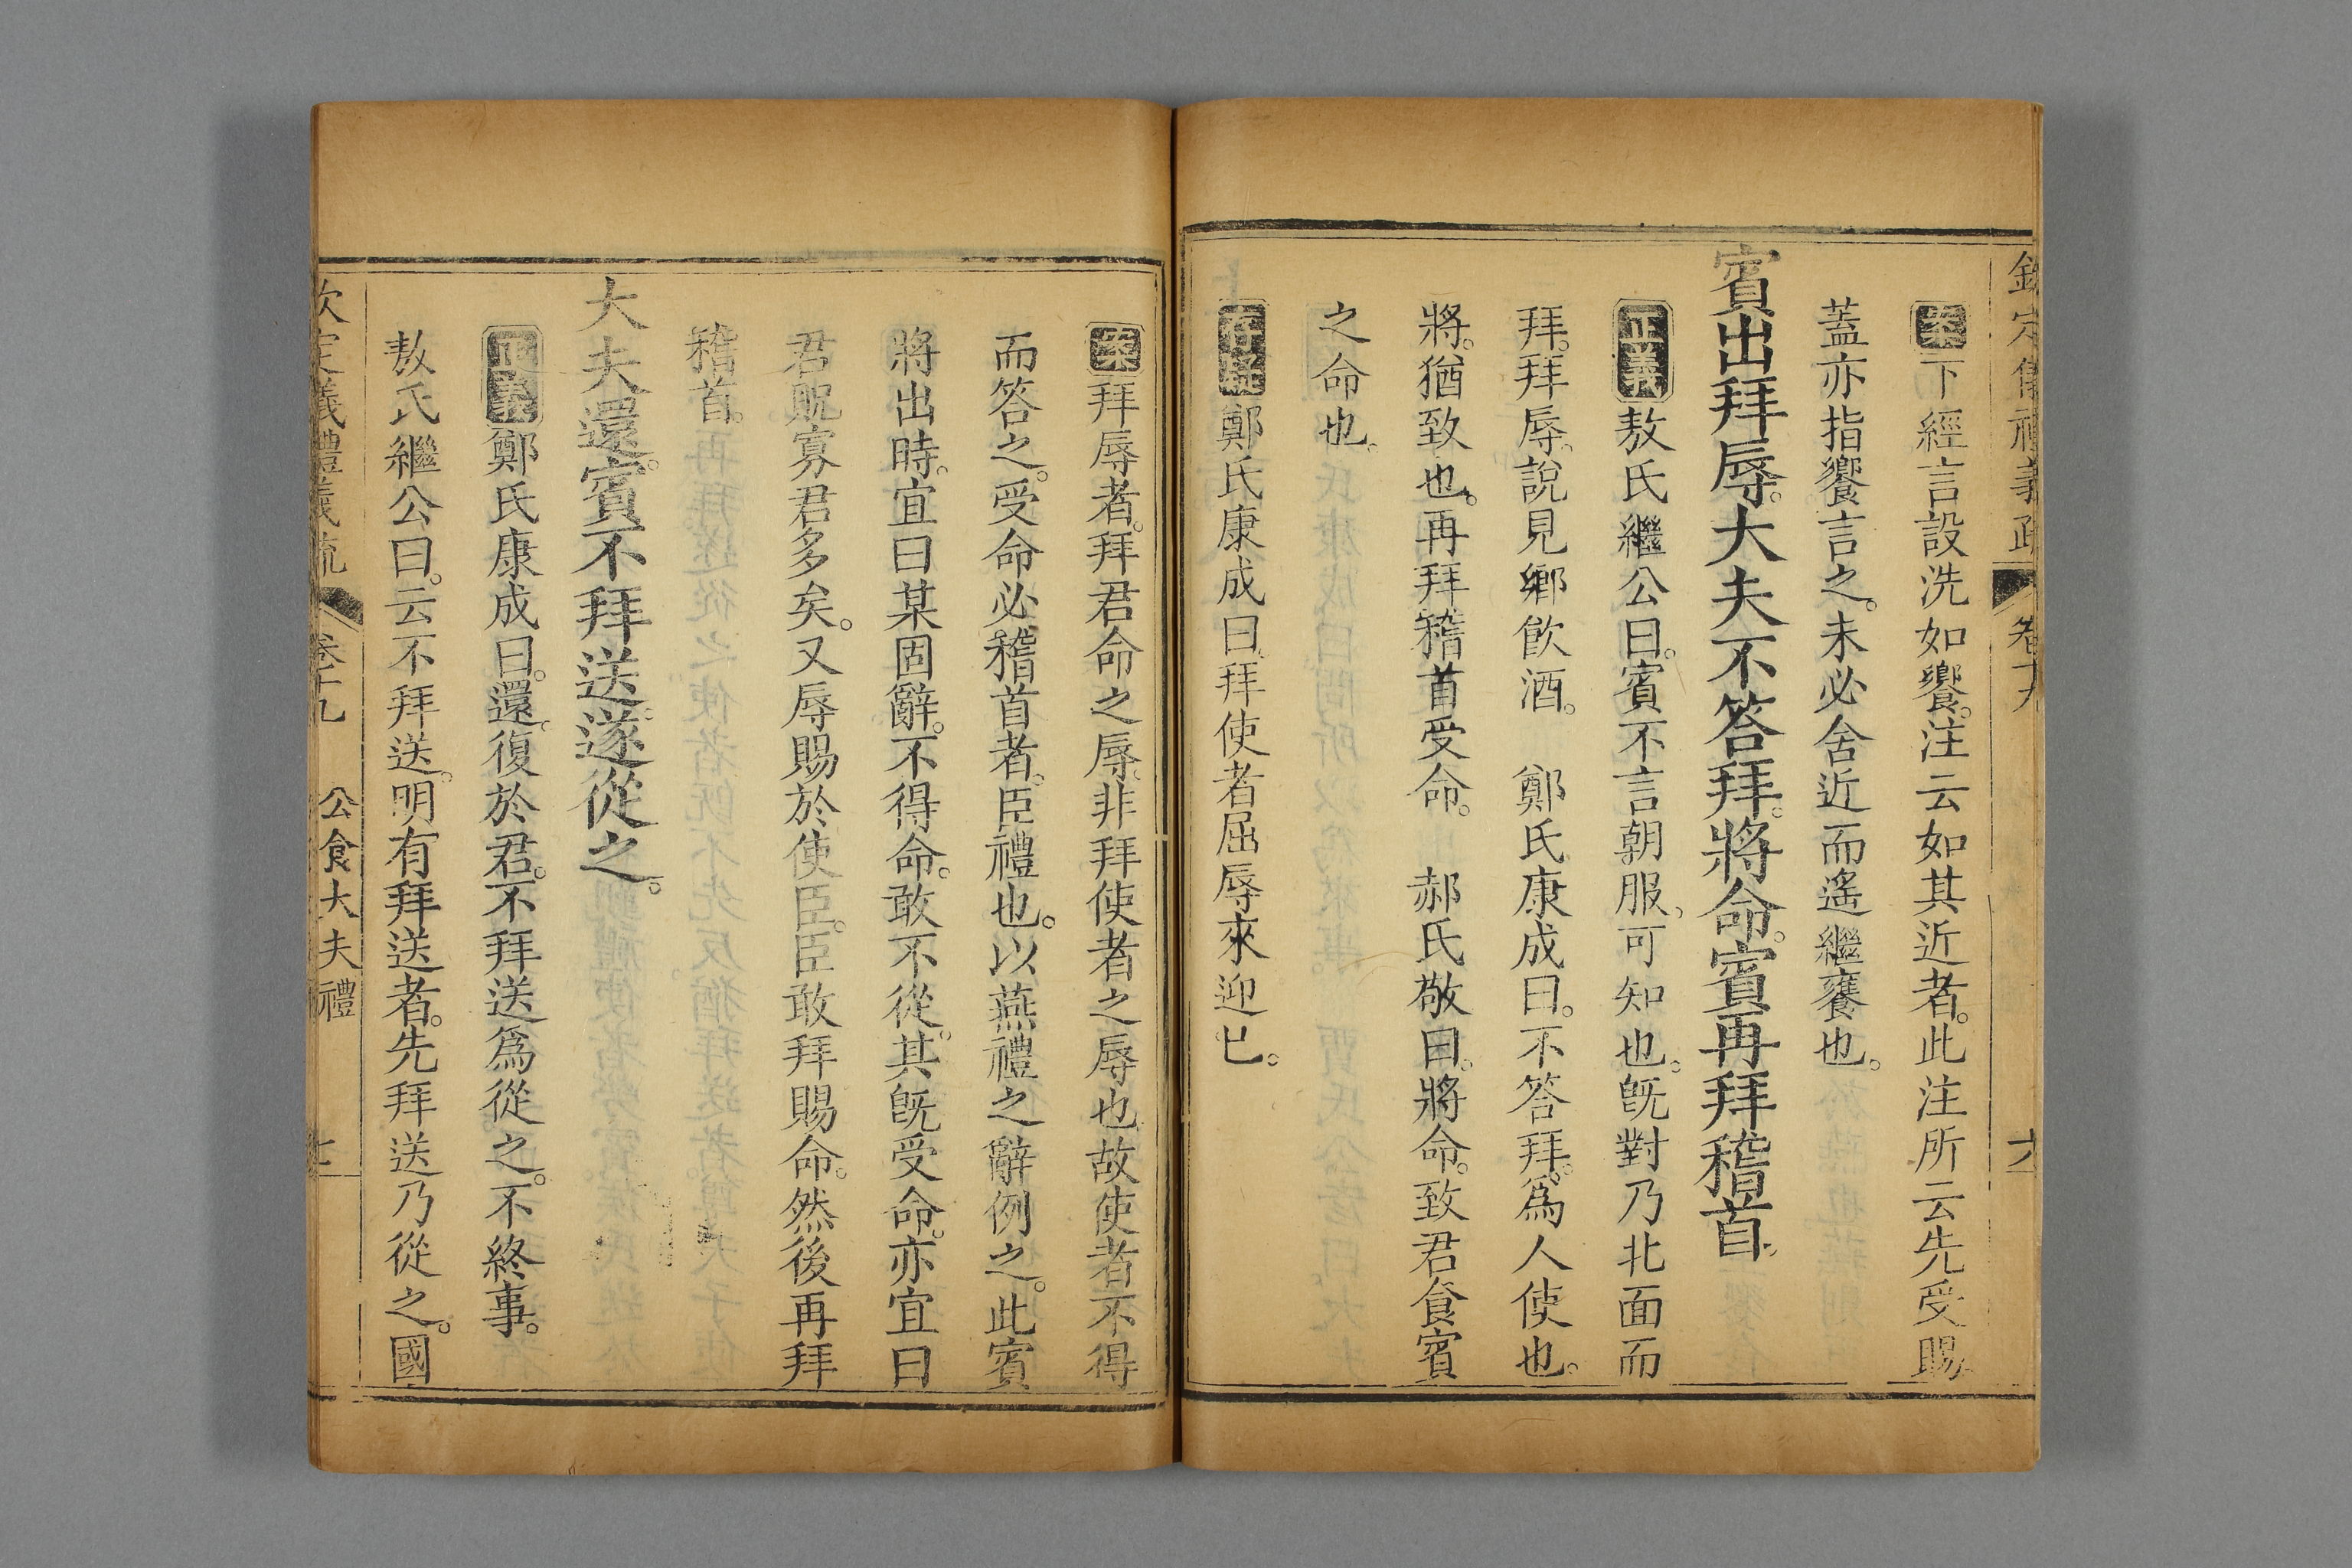 欽定儀禮義疏　卷十九　六
案下經言設洗如饗。注云如其近者。此注所云先受賜
蓋亦指饗言之。未必舍近而遙繼饔也。
賓出拜辱。大夫不答拜。將命。賓再拜稽首。
正義敖氏繼公曰。賓不言朝服。可知也。旣對乃北面而
拜。拜辱。說見鄉飲酒。　鄭氏康成曰。不答拜。爲人使也。
將。猶致也。再拜稽首受命。　郝氏敬曰。將命。致君食賓
之命也。
存疑鄭氏康成曰。拜使者屈辱來迎已。
案拜辱者。拜君命之辱。非拜使者之辱也故使者不得
而答之。受命必稽首者。臣禮也。以燕禮之辭例之。此賓
將出時。宜曰某固辭。不得命。敢不從。其旣受命。亦宜曰
君貺寡君多矣。又辱賜於使臣。臣敢拜賜命。然後再拜
稽首。
大夫還。賓不拜送。遂從之。
正義鄭氏康成曰。還。復於君。不拜送爲從之。不終事。
敖氏繼公曰。云不拜送。明有拜送者。先拜送乃從之。國
欽定儀禮義疏　卷十九　公食大夫禮　七